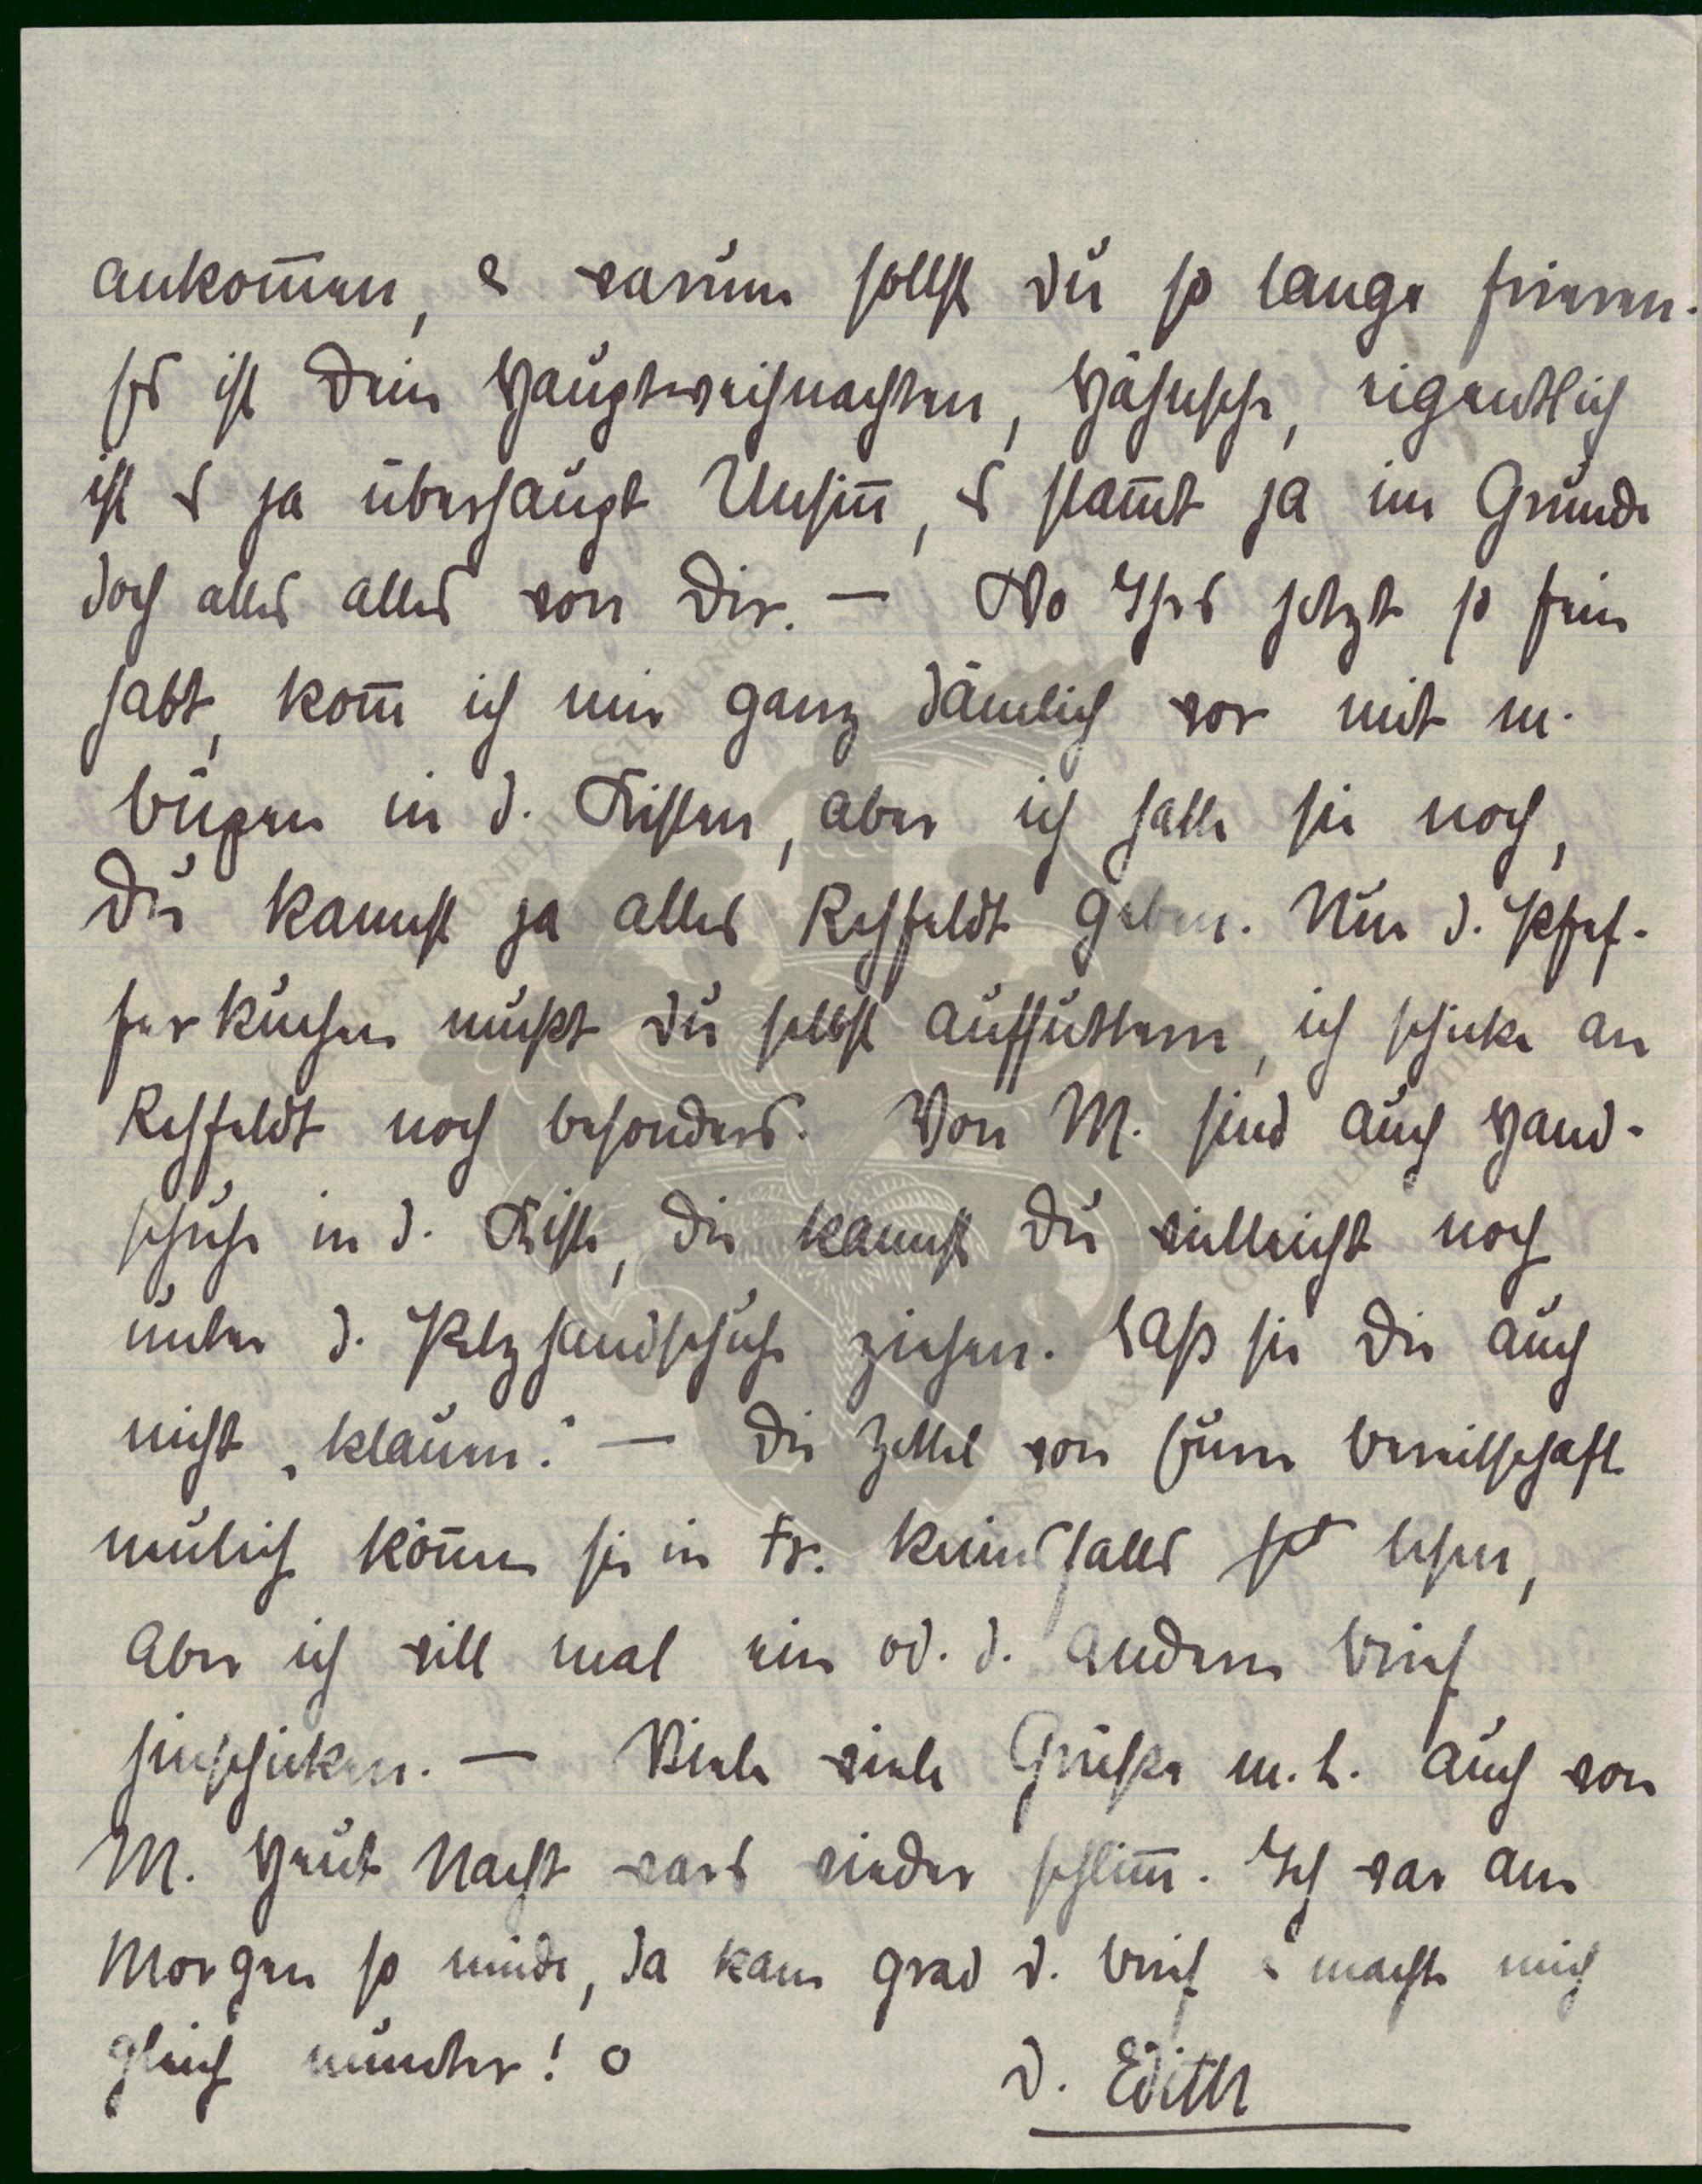 ankom̅en, & warum sollst Du so lange frieren.
Es ist Dein Hauptweihnachten, Hähnsche, eigentlich
ist es ja überhaupt Unsin̅, es stam̅t ja im Grunde
doch alles alles von Dir. — Wo Ihrs jetzt so fein
habt, kom̅ ich mir ganz dämlich vor mit m.
in d. Kisten, aber ich hatte sie noch,
Du kannst ja alles Rehfeldt geben. Nur d. Pfef-
ferkuchen mußt Du selbst auffuttern, ich schicke an
Rehfeldt noch besonders. Von M. sind auch Hand-
schuhe in d. Kiste, die kannst Du vielleicht noch
unter d. Pelzhandschuhe ziehen. Laß sie Dir auch
nicht „klauen." — Die Zettel von Eurer Bereitschaft
neulich kön̅en sie in Fr. keinesfalls lesen,
aber ich will mal ein od. d. andern Brief
hinschicken. — Viele viele Grüße m. L. auch von
M. Heut Nacht wars wieder schlim̅. Ich war am
Morgen so müde, da kam grad d. Brief & machte mich
gleich munter! o
D. Edith